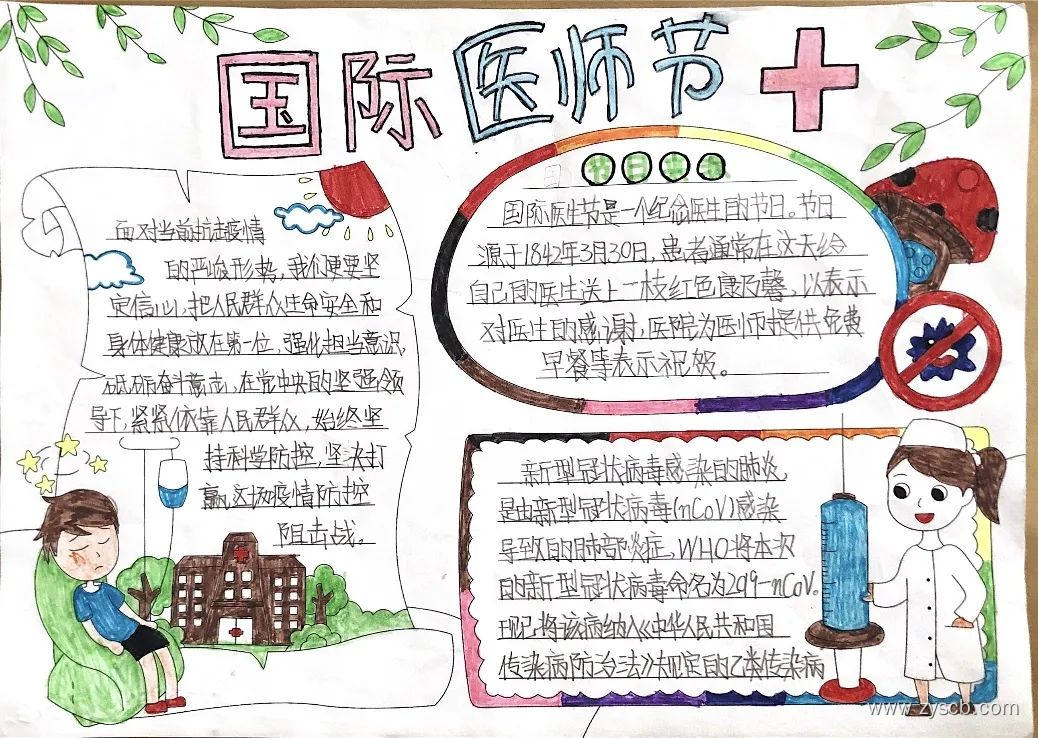 国际医师节
面对当前抗击疫情
的严峻形势，我们更要坚
定信心，把人民群众生命安全和
身体健康放在第一位，强化担当意识，
砥砺奋斗意志，在党中央的坚强领
导下，紧紧依靠人民群众，始终坚
持科学防控，坚决打
赢这场疫情防控
阻击战。
节日
国际医生节是一个纪念医生的节日。节日
源于1842年3月30日，患者通常在这天给
自己的医生送上一枝红色康乃馨，以表示
对医生的感谢，医院为医师提供免费
早餐等表示祝贺。
新型冠状病毒感染的肺炎，
是由新型冠状病毒(nCoV)感染
导致的肺部炎症，WHO将本次
的新型冠状病毒命名为2019-nCoV。
现已将该病纳入《中华人民共和国
传染病防治法》规定的乙类传染病
www.zyscb.com